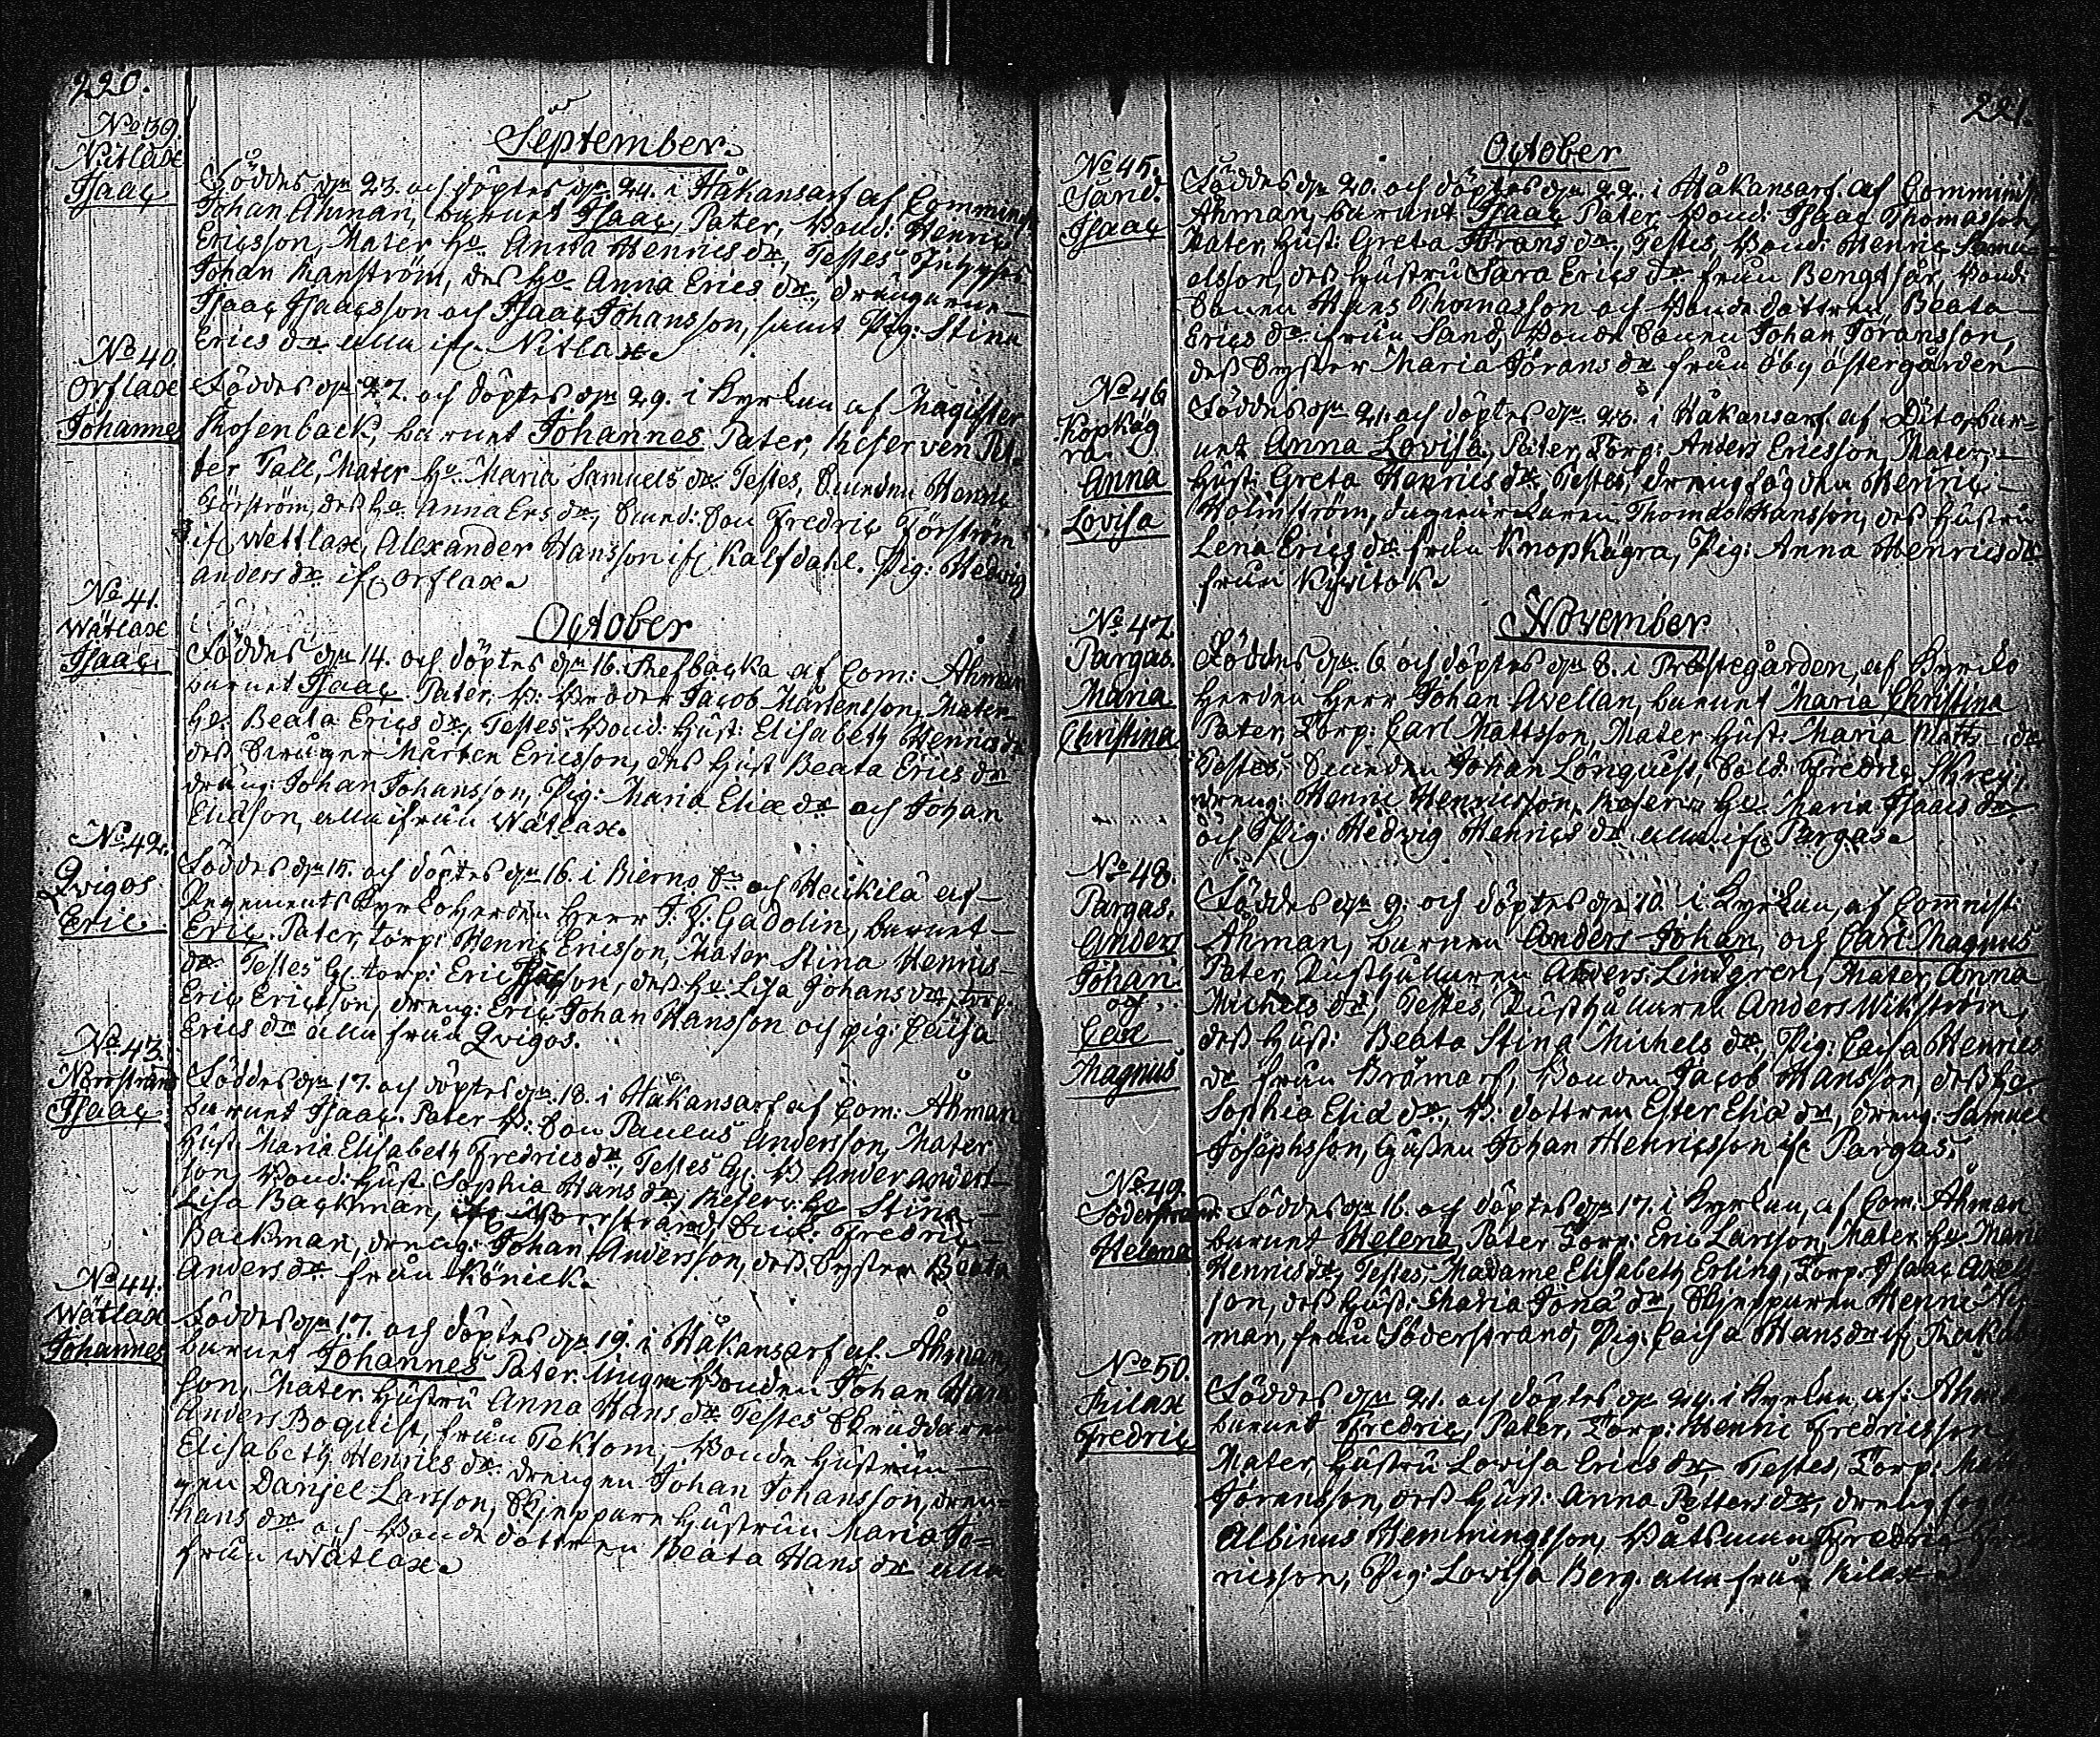 220.
September.
No 39.
Nitlax
Isaac
Föddes den 23. och döptes den 24. i Håkansarf af Comminist
Johan Åhman, barnet Isaac, Pater, Bond: Henric
Ericsson, Mater H:o Anna Henrics dr, Testes
Johan Ranström, des H:o Anna Erics dr, drängarne
Isaac Isaacsson och Isaac Johansson, samt Pig: Stina
Erics dr alla if. Nitlax.
No 40.
Orslax
Johannes
Föddes den 27. och döptes den 29. i kyrkan af Magister
Rosenback, barnet Johannes Pater, Reserven Pet-
ter Tall, Mater H:o Maria Samuels dr Testes, Smeden Henric
Sjörström, des H:o Anna Ers dr, Smed: Son Fredric Sjörström
if Wettlax, Alexander Hansson if Kalfdahl. Pig: Hedwig
Anders dr if Orslax.
October
No 41.
Wätlax
Isaac.
Föddes den 14. och döptes den 16. Refbacka af Com: Åhman
barnet Isaac Pater, B: Broder Jacob Mårtensson, Mater
H:o Beata Erics dr, Testes Bond: Hust: Elisabeth Henrics dr
des Swåger Mårten Ericsson, des Hust Beata Erics dr
dräng: Johan Johansson, Pig: Maria Eliæ dr och Johan
Eliasson, alla ifrån Wätlax.
No 42.
Qvigos
Eric
Föddes den 15. och döptes den 16. i Bierno Sn och Heickilä af
Regements Kyrkoherden Herr J. Z: Gadolin, barnet
Eric. Pater, torp: Henric Ericsson, Mater Stina Henrics
dr Testes torp: Eric son, des H:o Lisa Johans dr, torp:
Eric Ericsson, dreng: Eric Johan Hansson och pig: Caisa
Erics dr alla från Qvigos.
No 43.
Norrstrand
Isaac
Föddes den 17. och döptes den 18. i Håkansarf af Com: Åhman
barnet Isaac. Pater B: Son Paulus Andersson, Mater
Hust: Maria Elisabeth Fredrics dr, Testes B Ander Anders-
son, Bond: Hust Sophia Hans dr, Reserv: H:o Stina
Lisa Backman, Norrstrand, Fredric
Backman, dreng: Johan Andersson, des Syster Beata
Anders dr från Könick.
No 44.
Wätlax
Johannes
Föddes den 17. och döptes den 19. i Håkansarf af Åhman,
barnet Johannes Pater Unga Bonden Johan Hans
son, Mater Hustru Anna Hans dr Testes Skräddaren
Anders Boquist, från Tektom, Bonde Hustrun
Elisabeth Henrics dr drengen Johan Johansson, dren-
gen Danjel Larsson, Skeppare Hustrun Maria Jo-
hans dr och Bonde dottren Beata Hans dr alla
från Wätlax.
221.
October
No 45.
Sand.
Isaac
Föddes den 20. och döptes den 22. i Håkansarf. af Comminist
Åhman, barnet Isaac Pater, Bond: Isaac Thomasson
Mater, Hust: Greta Jörans dr, Testes, Bond: Henric Samu-
elsson, des Hustru Sara Erics dr från Bengtsår, Bond:
Sonen Hans Thomasson och Bonde dottren Beata
Erics dr ifrån Sand, Bonde Sonen Johan Jöransson,
des Syster Maria Jörans dr från Öby östergården
No 46
Kopkäg
ra.
Anna
Lovisa
Föddes den 21. och döptes den 23. i Håkansarf. af Dito, bar-
net Anna Lovisa, Pater, Torp: Anders Ericsson, Mater,
Hust: Greta Henrics dr, Testes, drengfogden Henric
Holmström, dagwärkaren Thomas Hansson, des Hustru
Lena Erics dr från Knopkägra, Pig: Anna Henrics dr
från Kiwitok.
November
No 47.
Pargas.
Maria
Christina
Föddes den 6. och döptes den 8. i Prästegården, af Kyrko
herden Herr Johan Avellan, barnet Maria Christina
Pater, Torp: Carl Mattsson, Mater Hust: Maria Matts dr
Testes, Smeden Johan Lönquist, Sold: Fredric Skrey,
dreng: Henric Henricsson, Reserv: H:o Maria Isaacs dr
och Pig: Hedvig Henrics dr alla if. Pargas.
No 48.
Pargas.
Anders
Johan
och
Carl
Magnus
Föddes den 9. och döptes den 10. i kyrkan, af Comminist:
Åhman, barnen Anders Johan, och Carl Magnus
Pater, Rusthållaren Anders Lindgren, Mater, Anna
Michels dr, Testes, Rusthållaren Anders Wikström,
des Hust: Beata Stina Michels dr, Pig: Caisa Henrics
dr från Bromarf, Bonden Jacob Hansson, des H:o
Sophia Eliæ dr, B: dottren Ester Eliæ dr, dreng: Samuel
Josephsson, Gåssen Johan Henricsson if Pargas.
No 49.
Söderstrand
Helena
Föddes den 16. och döptes den 17. i kyrkan, af Com: Åhman
barnet Helena, Pater Torp: Eric Larsson, Mater H:o Maria
Henrics dr, Testes, Madame Elisabeth Erling, Torp: Isaac Axel
son, des Hust: Maria Jona dr, Skepparen Henric Ny-
man, från Söderstrand, Pig: Caisa Hans dr if
No 50.
Rilax
Fredric
Föddes den 21. och döptes den 24. i kyrkan af: Åhman
barnet Fredric, Pater, Torp: Henric Fredricsson
Mater, Hustru Lovisa Erics dr, Testes, Torp:
Jöransson, des Hust: Anna Petters dr, drengfogden
Albinus Hemmingsson, Båtsman Fredric
ricsson, Pig: Lovisa Berg. alla från Rilax.